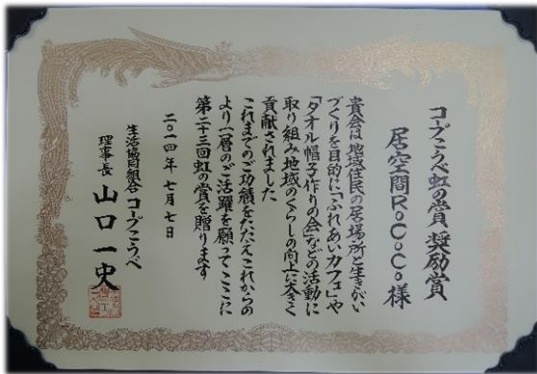 コープこうべ虹の賞 奨励賞
居空間RoCoCo 様
貴会は地域住民の居場所と生きがい
づくりを目的に「ふれあいカフェ」や
「タオル帽子作りの会」などの活動に
取り組み地域のくらしの向上に大きく
貢献されました
これまでのご功績をたたえこれからの
より一層のご活躍を願ってここに
第二十三回虹の賞を贈ります
二〇一四年七月七日
生活協同組合 コープこうべ
理事長 山口一史